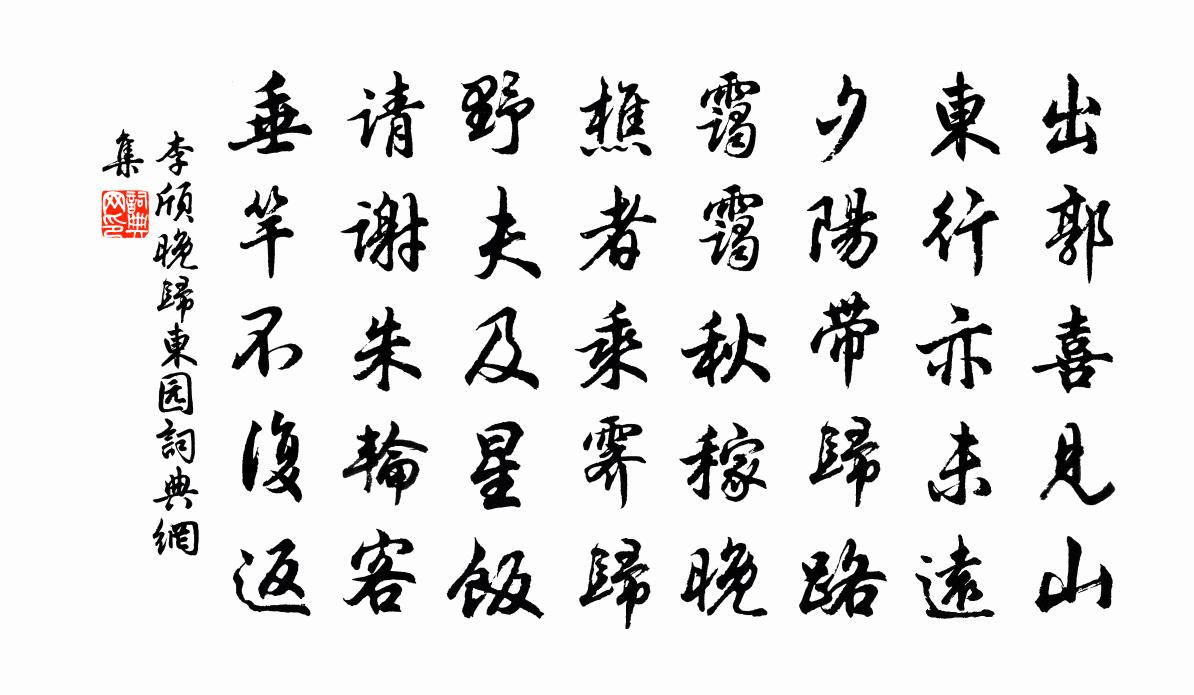 出郭喜見山
東行亦未遠
夕陽帶歸路
靄靄秋稼晚
樵者乘霽歸
野夫及星飯
请謝朱輪客
垂竿不復返
李頎晚歸東园詞典網
集
詞典网印